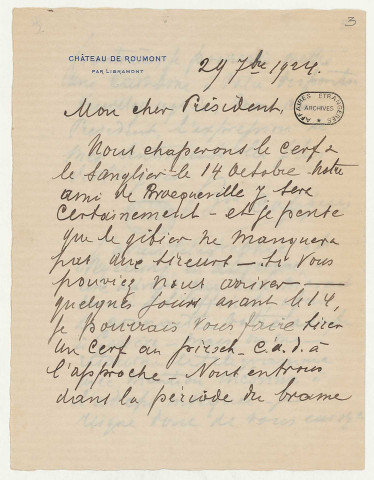 3
CHÂTEAU DE ROUMONT
PAR LIBRAMONT
29 7bre 1924.
AFFAIRES ETRANGÈRES
ARCHIVES
Mon cher Président,
Nous chasserons le cerf &
le sanglier le 14 octobre Notre
ami de Broqueville y sera
certainement - et je pense
que le gibier ne manquera
pas aux tireurs - Si vous
pouviez nous arriver
quelques jours avant le 14,
je pourrais vous faire tirer
un cerf au pirsch - c.à.d. à
l'approche - Nous entrons
dans la période du brame